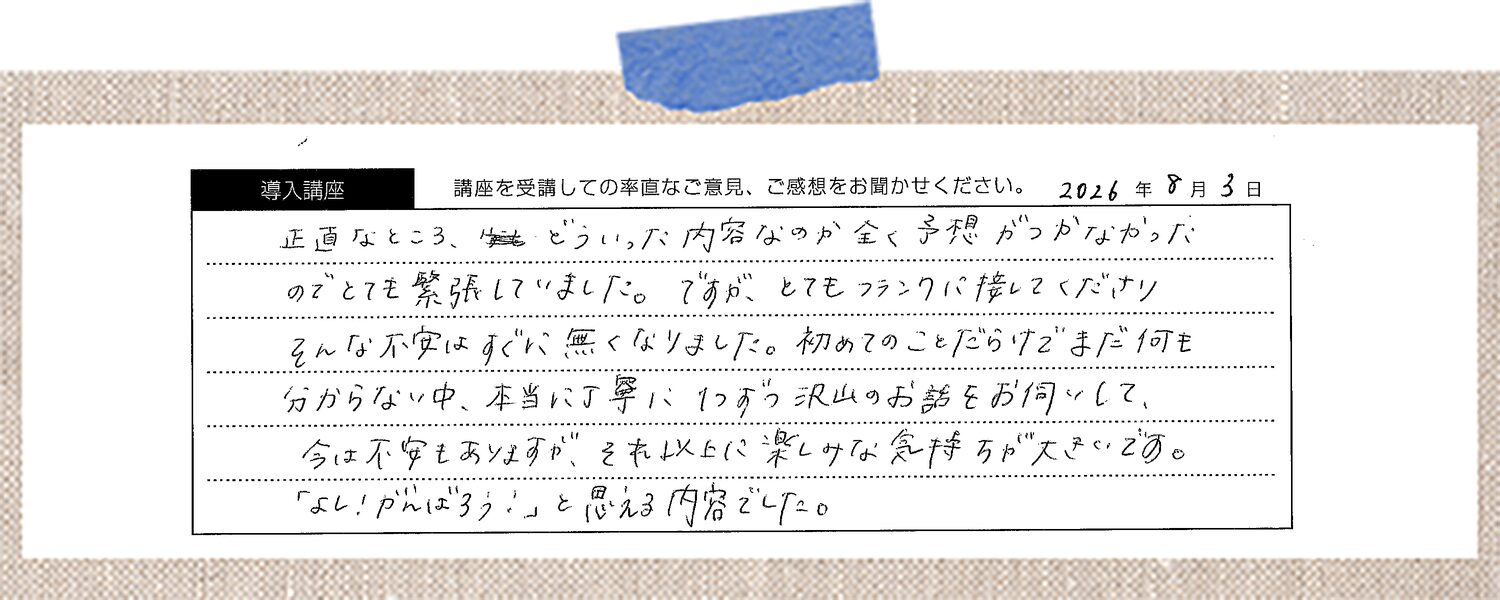 導入講座 講座を受講しての率直なご意見、ご感想をお聞かせください。 2026年8月3日
正直なところ、どういった内容なのか全く予想がつかなかった
のでとても緊張していました。ですが、とてもフランクに接してくださり
そんな不安はすぐに無くなりました。初めてのことだらけでまだ何も
分からない中、本当に丁寧に1つずつ沢山のお話をお伺いして、
今は不安もありますが、それ以上に楽しみな気持ちが大きいです。
「よし!がんばろう!」と思える内容でした。